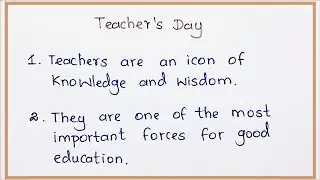 Teacher's Day
1. Teachers are an icon of
knowledge and wisdom.
2. They are one of the most
important forces for good
education.